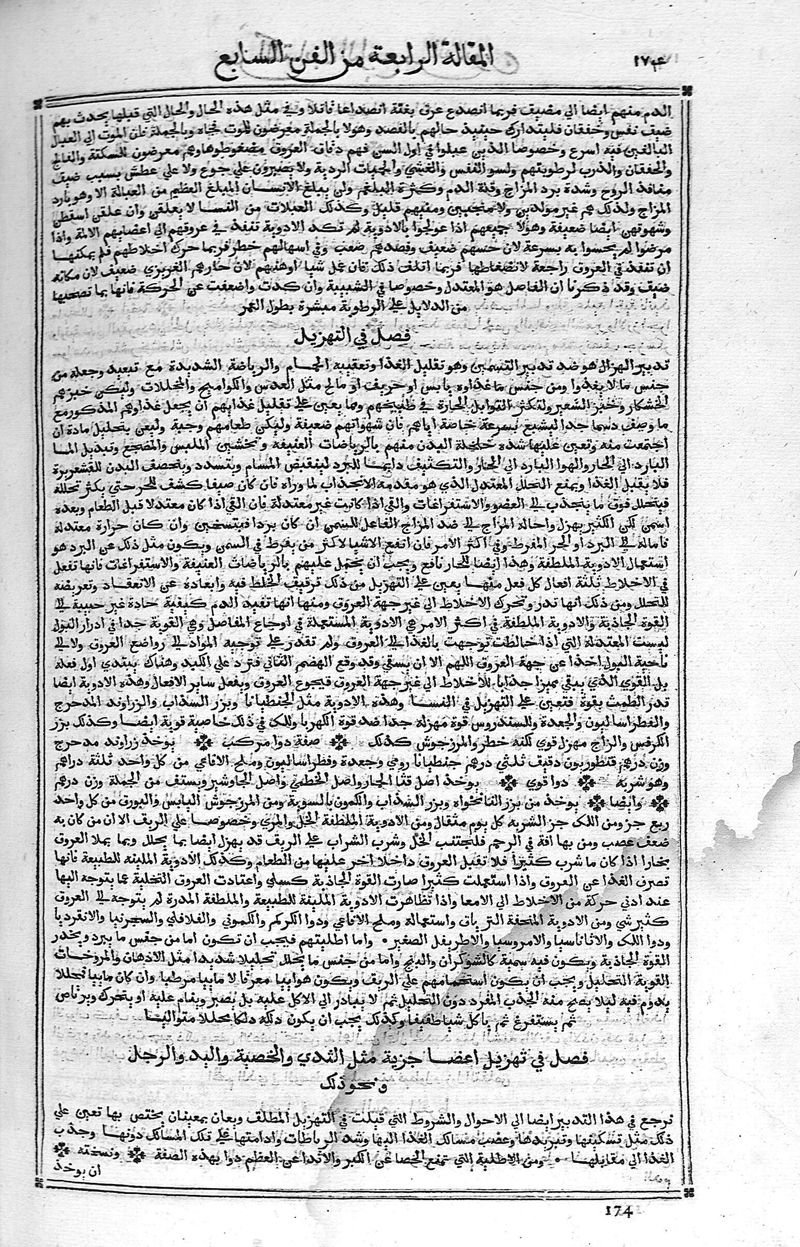 ١٧٤ المقالة الرابعة من الفن السابع
الدم منهم ايضا الى مضيف فربما انصدع عرق بغتة انصداعا قاتلا وفي مثل هذه الحال والحال التي قبلها يحدث بهم
ضيق نفس وخفقان فليتدارك حينيذ حالهم بالفصد وهولا بالجملة معرضون للموت فجاه وبالجملة فان الموت الى العبال
البالغين فيه اسرع وخصوصا الذين عبلوا في اول السن فهم دقاق العروق مضغوطوها وهم معرضون للسكتة والفالج
والخفقان والذرب لرطوبتهم ولسو النفس والغشي والحميات الردية ولا يصبرون على جوع ولا على عطش بسبب ضيق
منافذ الروح وشدة برد المزاج وقلة الدم وكثرة البلغم ولن يبلغ الانسان المبلغ العظيم من العبالة الا وهو بارد
المزاج ولذلك هم غير مولدين ولا منجبين ومنيهم قليل وكذلك العبلات من النسا لا يعلقن وان علقن اسقطن
وشهوتهن ايضا ضعيفة وهولا جميعهم اذا عولجوا بالادوية لم تكد الادوية تنفذ في عروقهم الى اعضايهم الالمة واذا
مرضوا لم يحسوا به بسرعة لان حسهم ضعيف وفصدهم صعب وفي اسهالهم خطر فربما حرك اخلاطهم فلم يمكنها
ان تنفذ في العروق راجعة لانضغاطها فربما اتلف ذلك فان عمل شيا اوهنهم لان حارهم الغريزي ضعيف لان مكانه
ضيق وقد ذكرنا ان الفاضل هو المعتدل وخصوصا في الشبيبة وان كدت واضعفت عن الحركة فانها بما تصحبها
من الدلايل على الرطوبة مبشرة بطول العمر
فصل في التهزيل
تدبير الهزال هو ضد تدبير التسمين وهو تقليل الغذا وتعقيبه الحمام والرياضة الشديدة مع تبعيد وجعله من
جنس ما لا يغذوا ومن جنس ما غذاوه يابس او حريف او مالح مثل العدس والكواميخ والمخللات وليكن خبزهم
الخشكار وخبز الشعير ولتكثر التوابل الحارة في طبيخهم ومما يعين على تقليل غذايهم ان يجعل غذاوهم المذكور مع
ما وصف دسما جدا ليشبع بسرعة خاصة اياهم فان شهواتهم ضعيفة وليكن طعامهم وجبة وليعن بتحليل مادة ان
اجتمعت منه وتعين عليها شدة خلخلة البدن منهم بالرياضات العنيفة وتخشين الملبس والمضجع وتبديل الما
البارد الى الحار والهوا البارد الى الحار والتكثيف دايما للبرد لينقبض المسام وتنسدد وتحصف البدن للقشعريرة
فلا يقبل الغذا ويمنع التحلل المعتدل الذي هو مقدمة الانجذاب لما وراه فان كان صيفا كشف للحر حتى يكثر تحلله
فيتحلل فوق ما ينجذب الى العضو والاستفراغات والقي اذا كانت غير معتدلة فان القي اذا كان معتدلا قبل الطعام وبعده
اسمن لكن الكثير يهزل واحالة المزاج الى ضد المزاج الفاعل للسمن ان كان بردا فبتسخين وان كان حرارة معتدلة
فامالة الى البرد او الحر المفرط وفي اكثر الامر فان انفع الاشيا لاكثر من يفرط في السمن ويكون مثل ذلك عن البرد هو
استعمال الادوية الملطفة وهذا ايضا للحار نافع ويجب ان يحمل عليهم بالرياضات العنيفة والاستفراغات فانها تفعل
في الاخلاط ثلثة افعال كل فعل منها يعين على التهزيل من ذلك ترقيق الخلط فيه وابعاده عن الانعقاد وتعريضه
للتحلل ومن ذلك انها تدر وتحرك الاخلاط الى غير جهة العروق ومنها انها تفيد الدم كيفية حادة غير حبيبة الى
القوة الجاذبة والادوية الملطفة في اكثر الامر هي الادوية المستعملة في اوجاع المفاصل وهي القوية جدا في ادرار البول
ليست المعتدلة التي اذا خالطت توجهت بالغذا الى العروق ولم تقدر على توجيه المواد الى رواضع العروق ولا الى
ناحية البول اخذا عن جهة العروق اللهم الا ان يسقى وقد وقع الهضم الثاني فترد على الكبد وهناك يبتدي اول فعله
بل القوي الذي يبقى مميزا جذابا للاخلاط الى غير جهة العروق فيجوع العروق ويفعل ساير الافعال وهذه الادوية ايضا
تدر الطمث بقوة فتعين على التهزيل في النسا وهذه الادوية مثل الجنطيانا وبزر السذاب والزراوند المدحرج
والفطراساليون والجعدة وللسندروس قوة مهزلة جدا ضد قوة الكهربا ولللك في ذلك خاصية قوية ايضا وكذلك بزر
الكرفس والزاج مهزل قوي لكنه خطر والمرزجوش كذلك ❈ صفة دوا مركب ❈ يوخذ زراوند مدحرج
وزن درهم قنطوريون دقيق ثلثي درهم جنطيانا رومي وجعدة وفطراساليون وملح الافاعي من كل واحد ثلثة دراهم
وهو شربة ❈ دوا قوي ❈ يوخذ اصل قثا الحمار واصل الخطمي واصل الجاوشير ويستف من الجملة وزن درهم
❈ وايضا ❈ يوخذ من بزر النانخواه وبزر السذاب والكمون بالسوية ومن المرزجوش اليابس والبورق من كل واحد
ربع جز ومن اللك جز الشربة كل يوم مثقال ومن الادوية الملطفة الخل والمري وخصوصا على الريق الا ان من كان به
ضعف عصب ومن بها افة في الرحم فليجتنب الخل وشرب الشراب على الريق قد يهزل ايضا بما يحلل وبما يملا العروق
بخارا اذا كان ما شرب كثيرا فلا تقبل العروق داخلا اخر عليها من الطعام وكذلك الادوية الملينة للطبيعة فانها
تصرف الغذا عن العروق واذا استعملت كثيرا صارت القوة الجاذبة كسلى واعتادت العروق التخلية عما يتوجه اليها
عند ادنى حركة من الاخلاط الى الامعا واذا تظاهرت الادوية الملينة للطبيعة والملطفة المدرة لم يتوجه الى العروق
كثير شي ومن الادوية المنحفة الترياق واستعماله وملح الافاعي ودوا الكركم والكموني والفلافلي والسجزنيا والانقرديا
ودوا اللك والاثاناسيا والامروسيا والاطريفل الصغير • واما اطليتهم فيجب ان تكون اما من جنس ما يبرد ويخدر
القوة الجاذبة ويكون فيه سمية كالشوكران والبنج واما من جنس ما يحلل تحليلا شديدا مثل الادهان والمروخات
القوية التحليل ويجب ان يكون استحمامهم على الريق ويكون هواييا معرقا لا ماييا مرطبا وان كان ماييا فمحللا
يدوم فيه ليلا يصح منه الجذب المفرد دون التحليل ثم لا يبادر الى الاكل عليه بل يصبر وينام عليه او يتحرك ويرتاض
ثم يستفرغ ثم ياكل شيا طفيفا وكذلك يجب ان يكون دلكه دلكا محللا متواليا
فصل في تهزيل اعضا جزية مثل الثدي والخصية واليد والرجل
ونحو ذلك
نرجع في هذا التدبير ايضا الى الاحوال والشروط التي قيلت في التهزيل المطلق ويعان بمعينات يختص بها تعين على
ذلك مثل تسكينها وتبريدها وعصب مسالك الغذا اليها وشد الرباطات وادامتها على تلك المسالك دونها وجذب
الغذا الى مقابلها • ومن الاطلية التي تمنع الخصا عن الكبر والاثدا عن العظم دوا بهذه الصفة ❈ ونسخته ❈
ان يوخذ
174